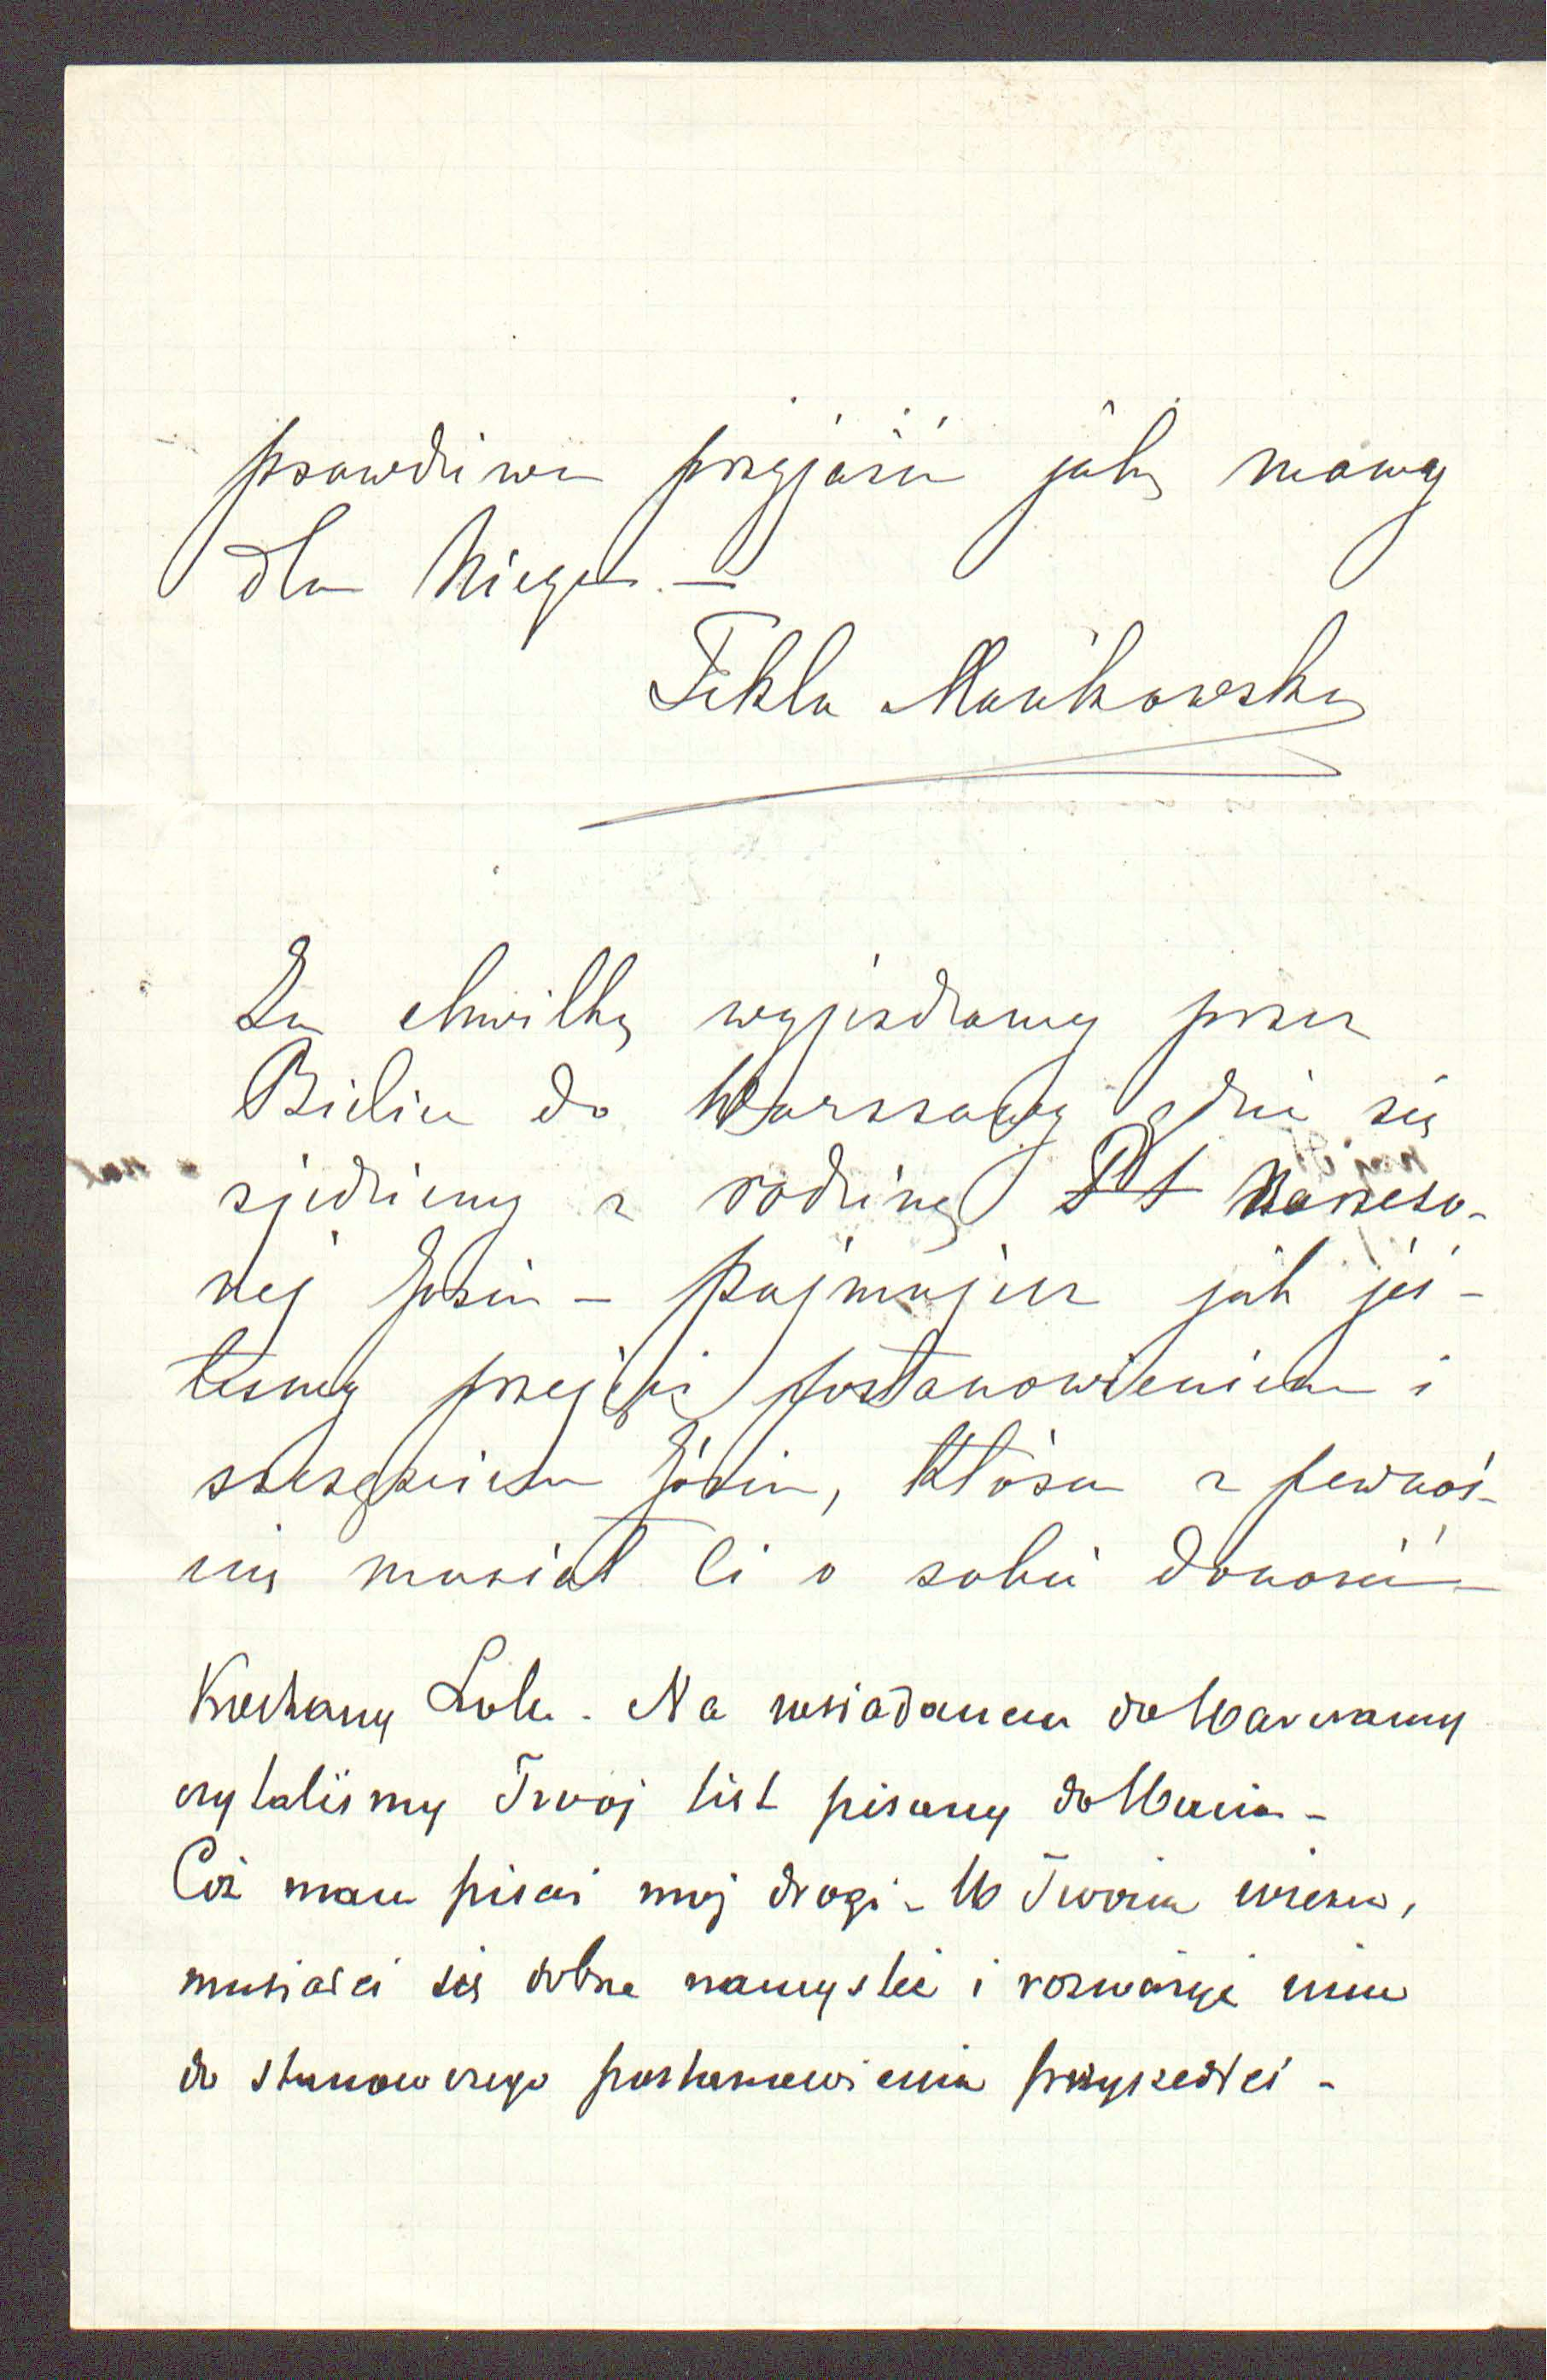 prawdziwa przyjaźń jaką mamy
dla Niego. —
Tekla Mańkowska
Za chwilkę wyjeżdżamy przez
Bielice do Warszawy gdzie się
zjedziemy z rodziną Narzeczo-
nej Józia — Pojmujesz jak jes-
teśmy przejęci postanowieniem i
szczęściem Józia, który z pewnoś-
cią musiał Ci o sobie donosić —
Kochany Lolu. Na wsiadanem do Warszawy
czytaliśmy Twój list pisany do
Cóż mam pisać mój drogi - W Twoim wieku,
musiałeś się dobrze namyśleć i rozważyć nim
do stanowczego postanowienia przyszedłeś -